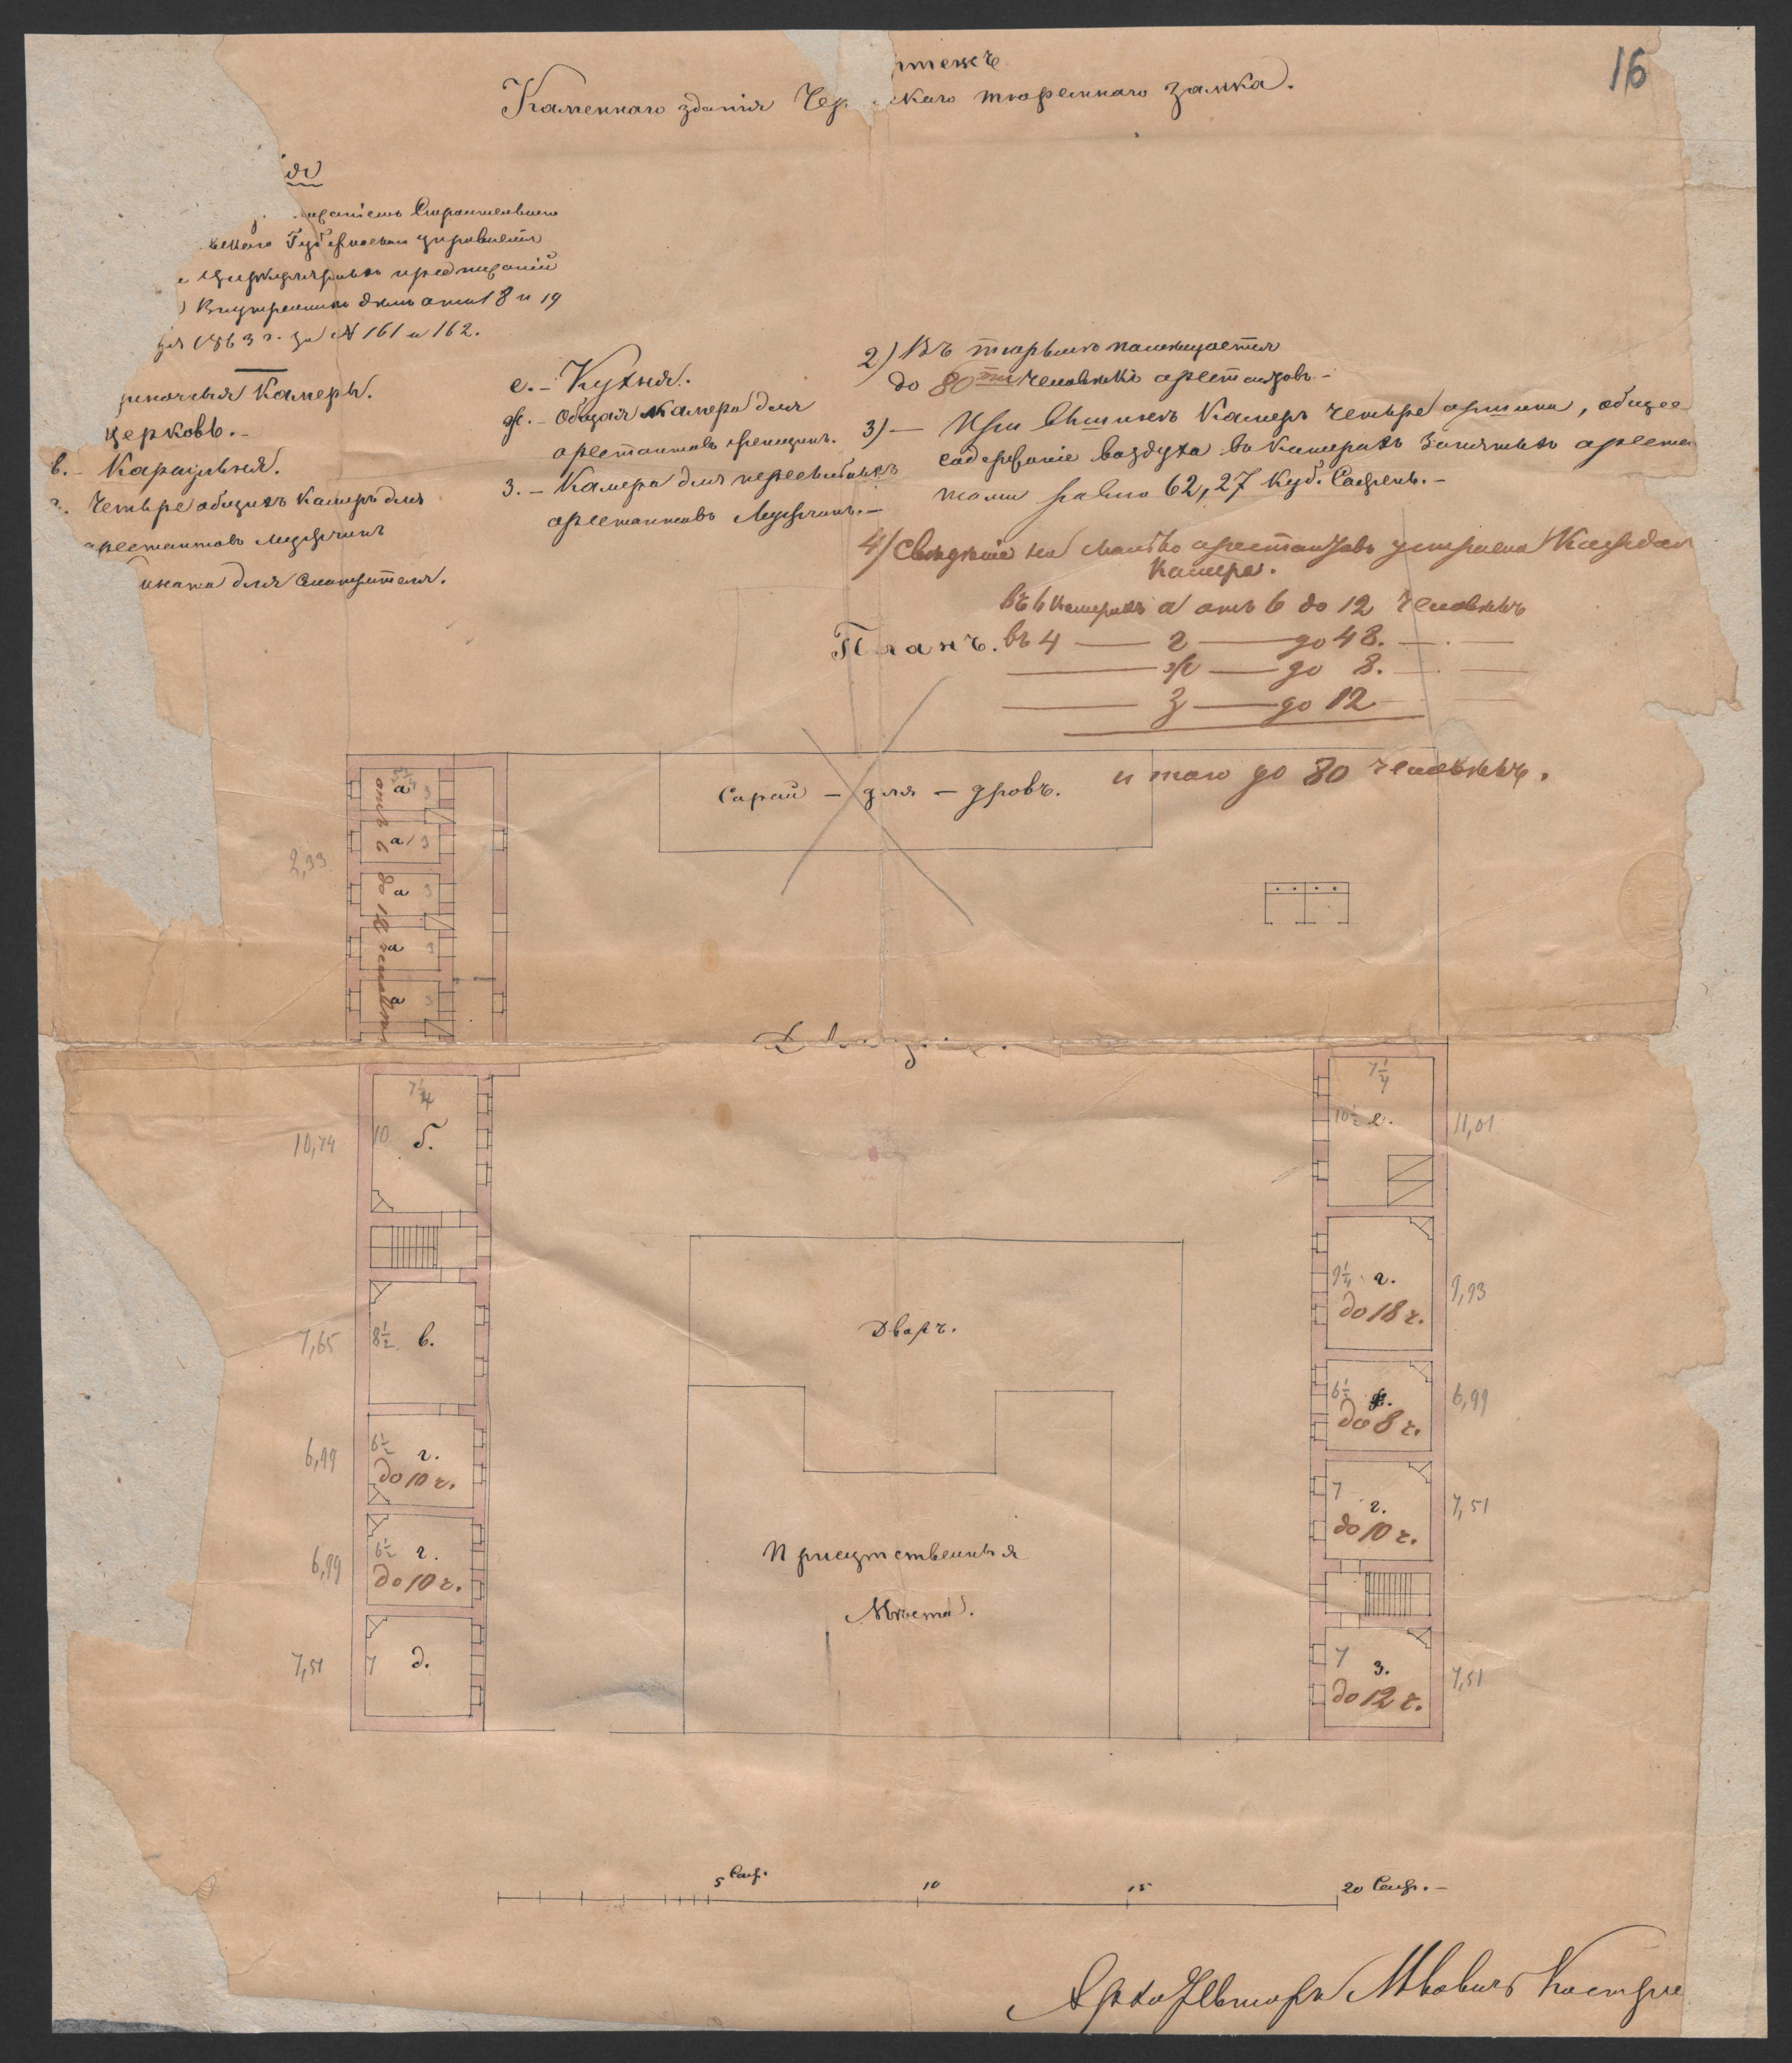 16
ртежъ
Каменнаго зданія Чер каго тюремнаго замка.
Строительнаго
Губернскаго управленія
циркулярныхъ предписаній
Внутреннихъ дѣлъ отъ 18 и 19
1863 г. за № 161 и 162.
Камеры.
церковь.
в. - Караульня.
Четыре общихъ камеръ для
арестантовъ мущинъ
для смотрителя.
е. - Кухня.
ж. - Общая камера для
арестантовъ женщинъ.
з. - Камера для пересыльныхъ
арестантовъ Мущинъ. -
2) Въ тюрьмѣ помещается
до 80ти человѣкъ арестантовъ -
3) - При вышинѣ камеръ четыре аршина, общее
содержаніе воздуха въ камерахъ занятыхъ ареста
тами равно 62,27 куб. Сажень. -
4) Свѣдѣніе на сколько арестантовъ устроена Каждая
камера.
въ 6 камерахъ а отъ 6 до 12 человѣкъ
Планъ.
въ 4 — г — до 48. —
— ж — до 8. —
— з — до 12
итого до 80 человѣкъ.
Сарай - для - дровъ.
а 3
а 3
а 3
а 3
а 3
отъ 6 до 12 человѣкъ
2,33
7 1/4
10,74
10
б.
7 1/4
10 1/2 е.
11,01
7,65
8 1/2
в.
Дворъ.
9 1/4 г.
до 18 ч.
9,93
6,99
6 1/2
г.
до 10 ч.
6 1/2 ж.
до 8 ч.
6,99
6,99
6 1/2 г.
до 10 ч.
Присутственныя
Мѣста.
7
г.
до 10 ч.
7,51
7,51
7
д.
7
з.
до 12 ч.
7,51
5 Саж.
10
15
20 Саж. -
Архитекторъ